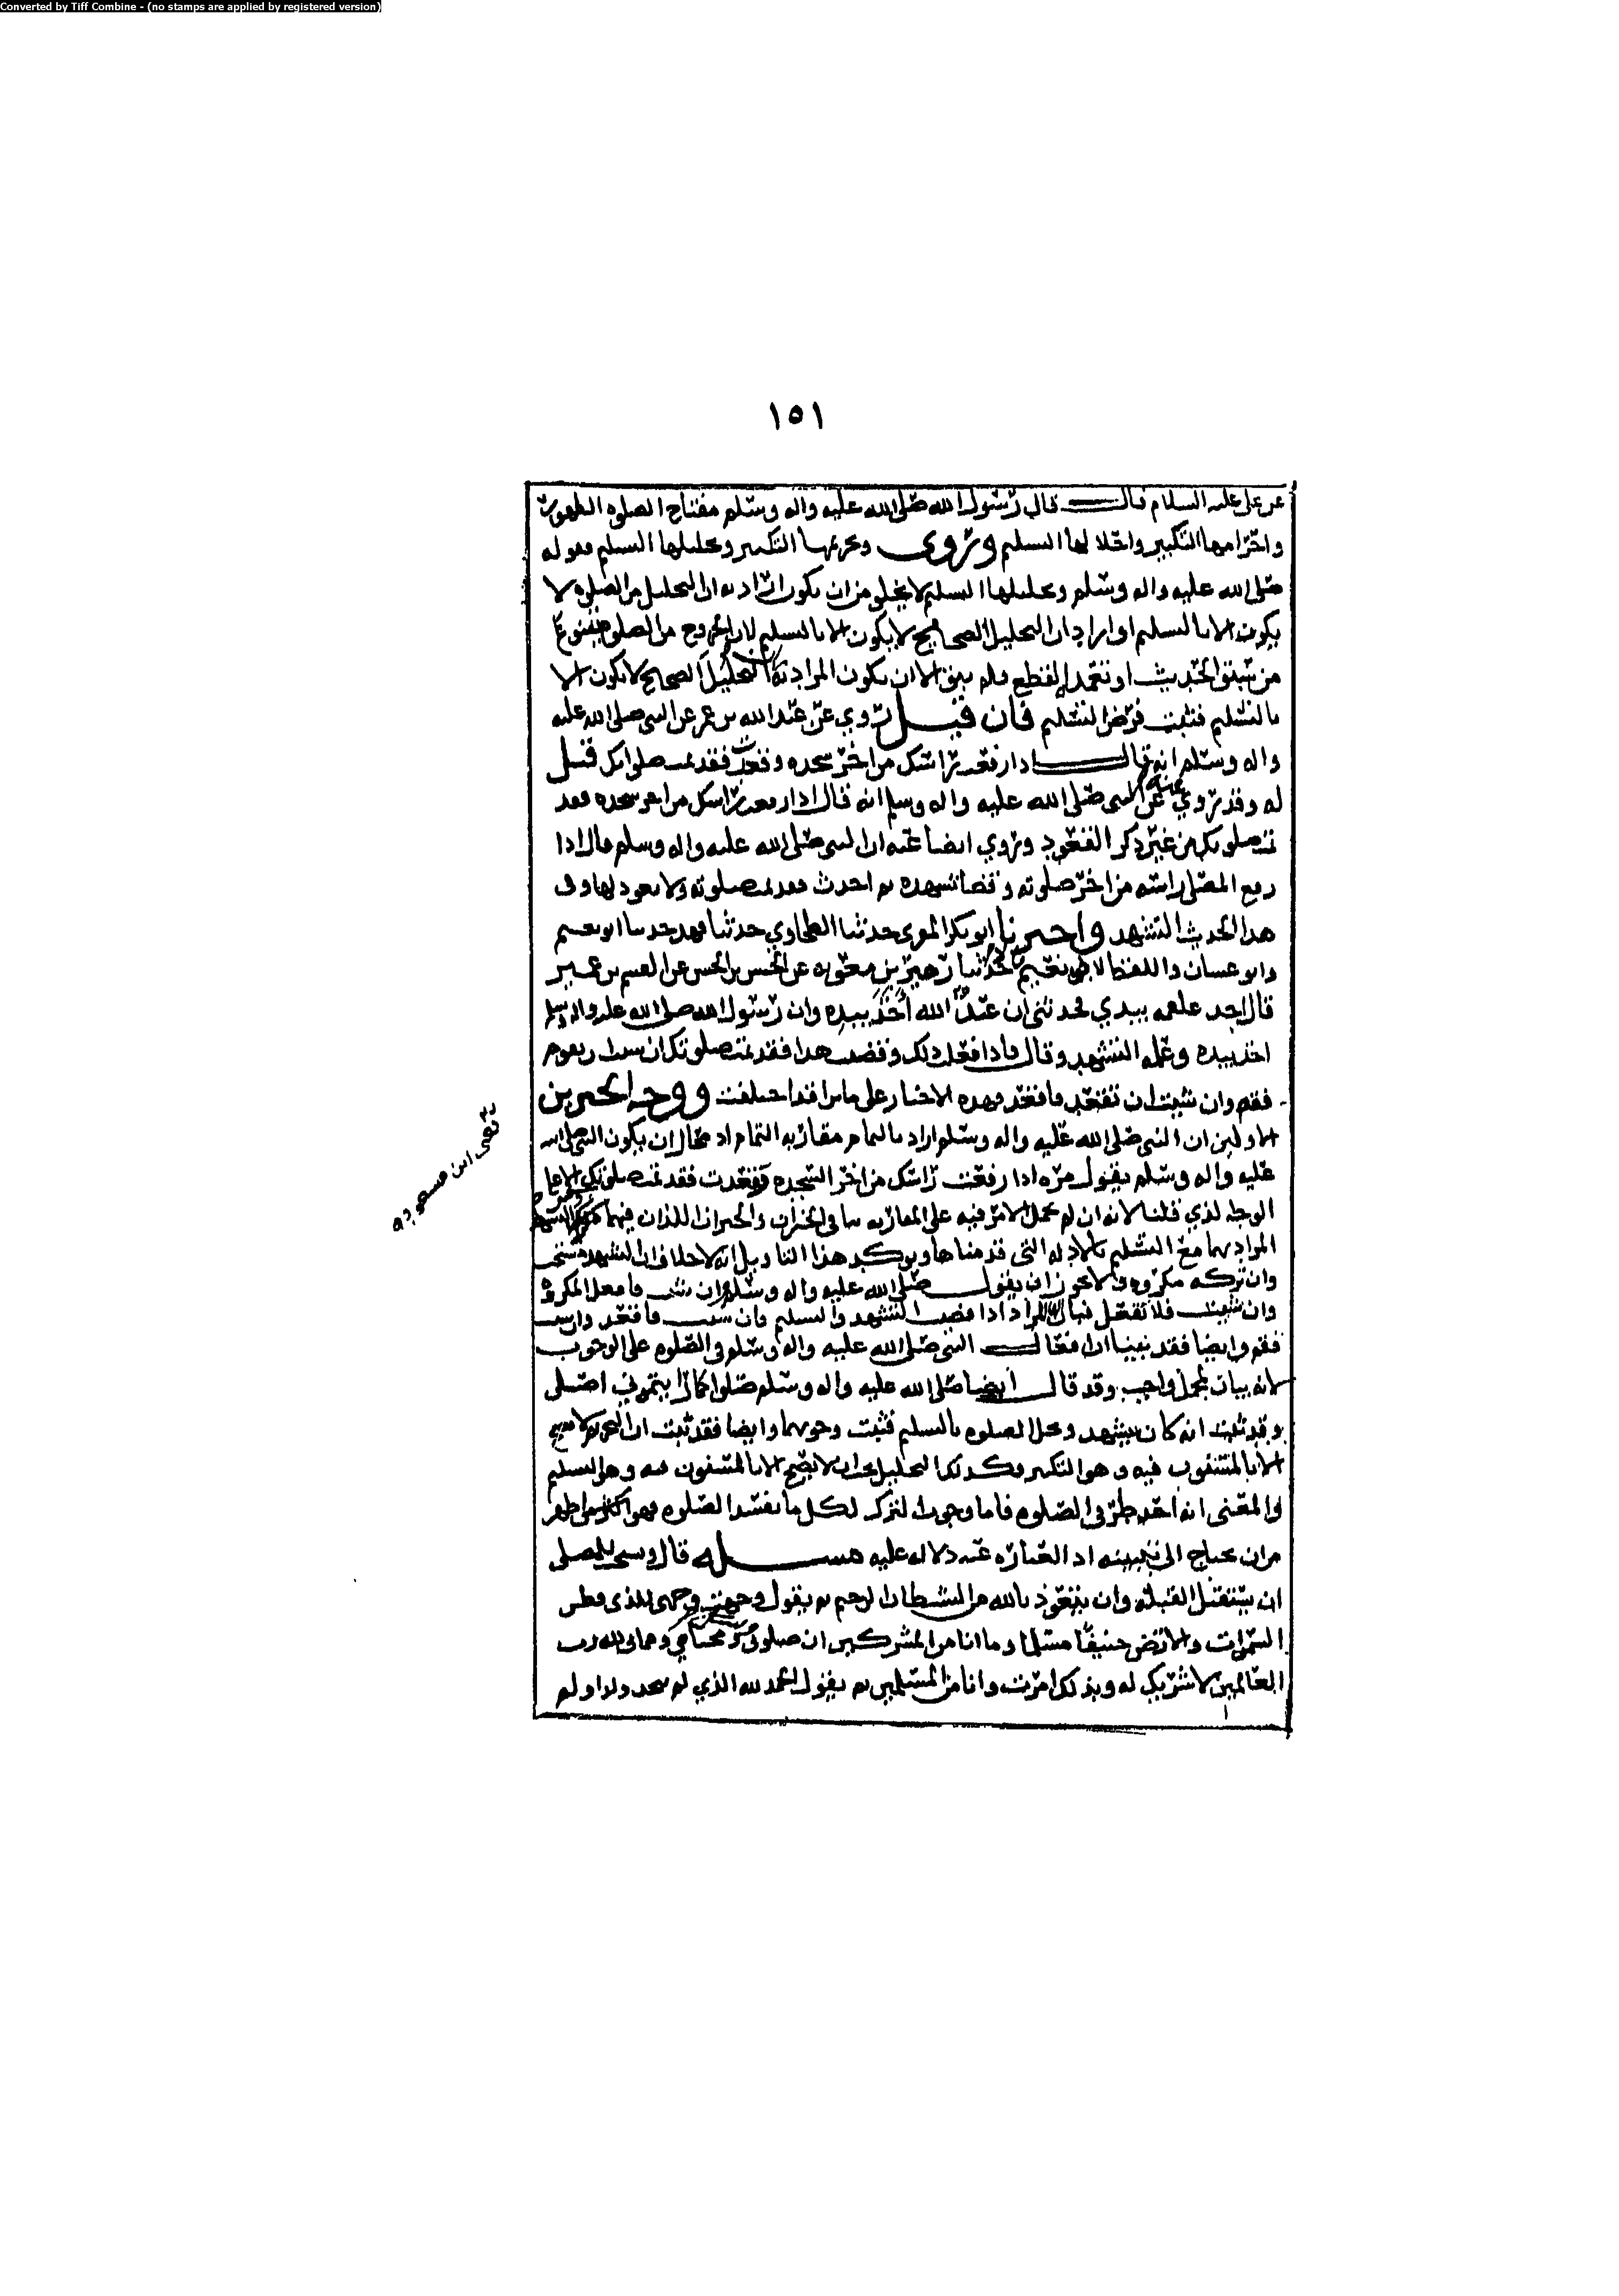 Converted by Tiff Combine - (no stamps are applied by registered version)
١٥١
عن علي عليه السلام قال قال رسول الله صلى الله عليه واله وسلم مفتاح الصلوه الطهور
واحرامها التكبير واحلالها التسليم وروى وتحريمها التكبير وتحليلها التسليم فقوله
صلى الله عليه واله وسلم وتحليلها التسليم لا يخلو من ان يكون اراد به ان التحليل من الصلوه لا
يكون الا بالتسليم او اراد ان التحليل الصحيح لا يكون الا بالتسليم لان الخروج من الصلوه
من سبق الحدث او تعمد القطع ولم يبق الا ان يكون المراد به ان التحليل الصحيح لا يكون الا
بالتسليم فثبت فرض التسليم فان قيل روي عن عبدالله بن عمر عن النبي صلى الله عليه
واله وسلم انه قال اذا رفعت راسك من اخر سجده وقعدت فقد تمت صلواتك قيل
له وقد روي عنه عن النبي صلى الله عليه واله وسلم انه قال اذا رفعت راسك من اخر سجده فقد
تمت صلوتك من غير ذكر القعود وروي ايضا عنه ان النبي صلى الله عليه واله وسلم قال اذا
رفع المصلي راسه من اخر صلوته وقضا تشهده ثم احدث فقد تمت صلوته ولا يعود لها وفى
هذا الحديث التشهد واخبرنا ابو بكر المقرى حدثنا الطحاوي حدثنا فهد حدثنا ابو نعيم
وابو غسان واللفظ لابي نعيم حدثنا زهير بن معويه عن الحسن بن الحر عن القسم بن مخيمر
قال اخذ علقمه بيدي فحدثني ان عبد الله اخذ بيده وان رسول الله صلى الله عليه واله وسلم
اخذ بيده وعلمه التشهد وقال فاذا فعلت ذلك وقضيت هذا فقد تمت صلوتك ان شئت ان تقوم
فقم وان شئت ان تقعد فاقعد فهذه الاخبار على ما ترا قد اختلفت ووجه الخبرين
الاولين ان النبي صلى الله عليه واله وسلم اراد بالتمام مقاربه التمام اذ محال ان يكون النبي صلى الله
عليه واله وسلم يقول مره اذا رفعت راسك من اخر السجده وقعدت فقد تمت صلوتك الا على
الوجه الذي قلنا لانه ان لم يحمل الامر فيه على المقاربه تنافى الخبران والخبران اللذان فيهما ذكر التشهد
المراد بهما مع التسليم بالادله التى قدمناها ويوكد هذا التاويل انه لا خلاف ان التشهد مستحب
وان تركه مكروه ولا يجوز ان يقول صلى الله عليه واله وسلم ان شئت فافعل المكروه
وان شئت فلا تفعل فبان ان المراد اذا قضيت التشهد والتسليم فان شئت فاقعد وان شئت
فقم وايضا فقد بينا ان افعال النبي صلى الله عليه واله وسلم في الصلوه على الوجوب
لانه بيان لمجمل واجب وقد قال ايضا صلى الله عليه واله وسلم صلوا كما رايتموني اصلى
وقد ثبت انه كان يتشهد وتحلل الصلوه بالتسليم فثبت وجوبهما وايضا فقد ثبت ان التحريم لا يصح
الا بالمسنون فيه وهو التكبير فكذلك التحليل يجب ان لا يصح الا بالمسنون فيه وهو التسليم
والمعنى انه احد طرفي الصلوه فاما وجوب الترك لكل ما يفسد الصلوه فهو اظهر
من ان يحتاج الى تبيينه اذ العباره عنه دلاله عليه مسله قال ويستحب للمصلى
ان يستقبل القبله وان يتعوذ بالله من الشيطان الرجيم ثم يقول وجهت وجهي للذي فطر
السموات والارض حنيفا مسلما وما انا من المشركين ان صلوتي ونسكي ومحياي ومماتي لله رب
العالمين لا شريك له وبذلك امرت وانا من المسلمين ثم يقول الحمد لله الذي لم يتخذ ولدا ولم
ابن مسعود